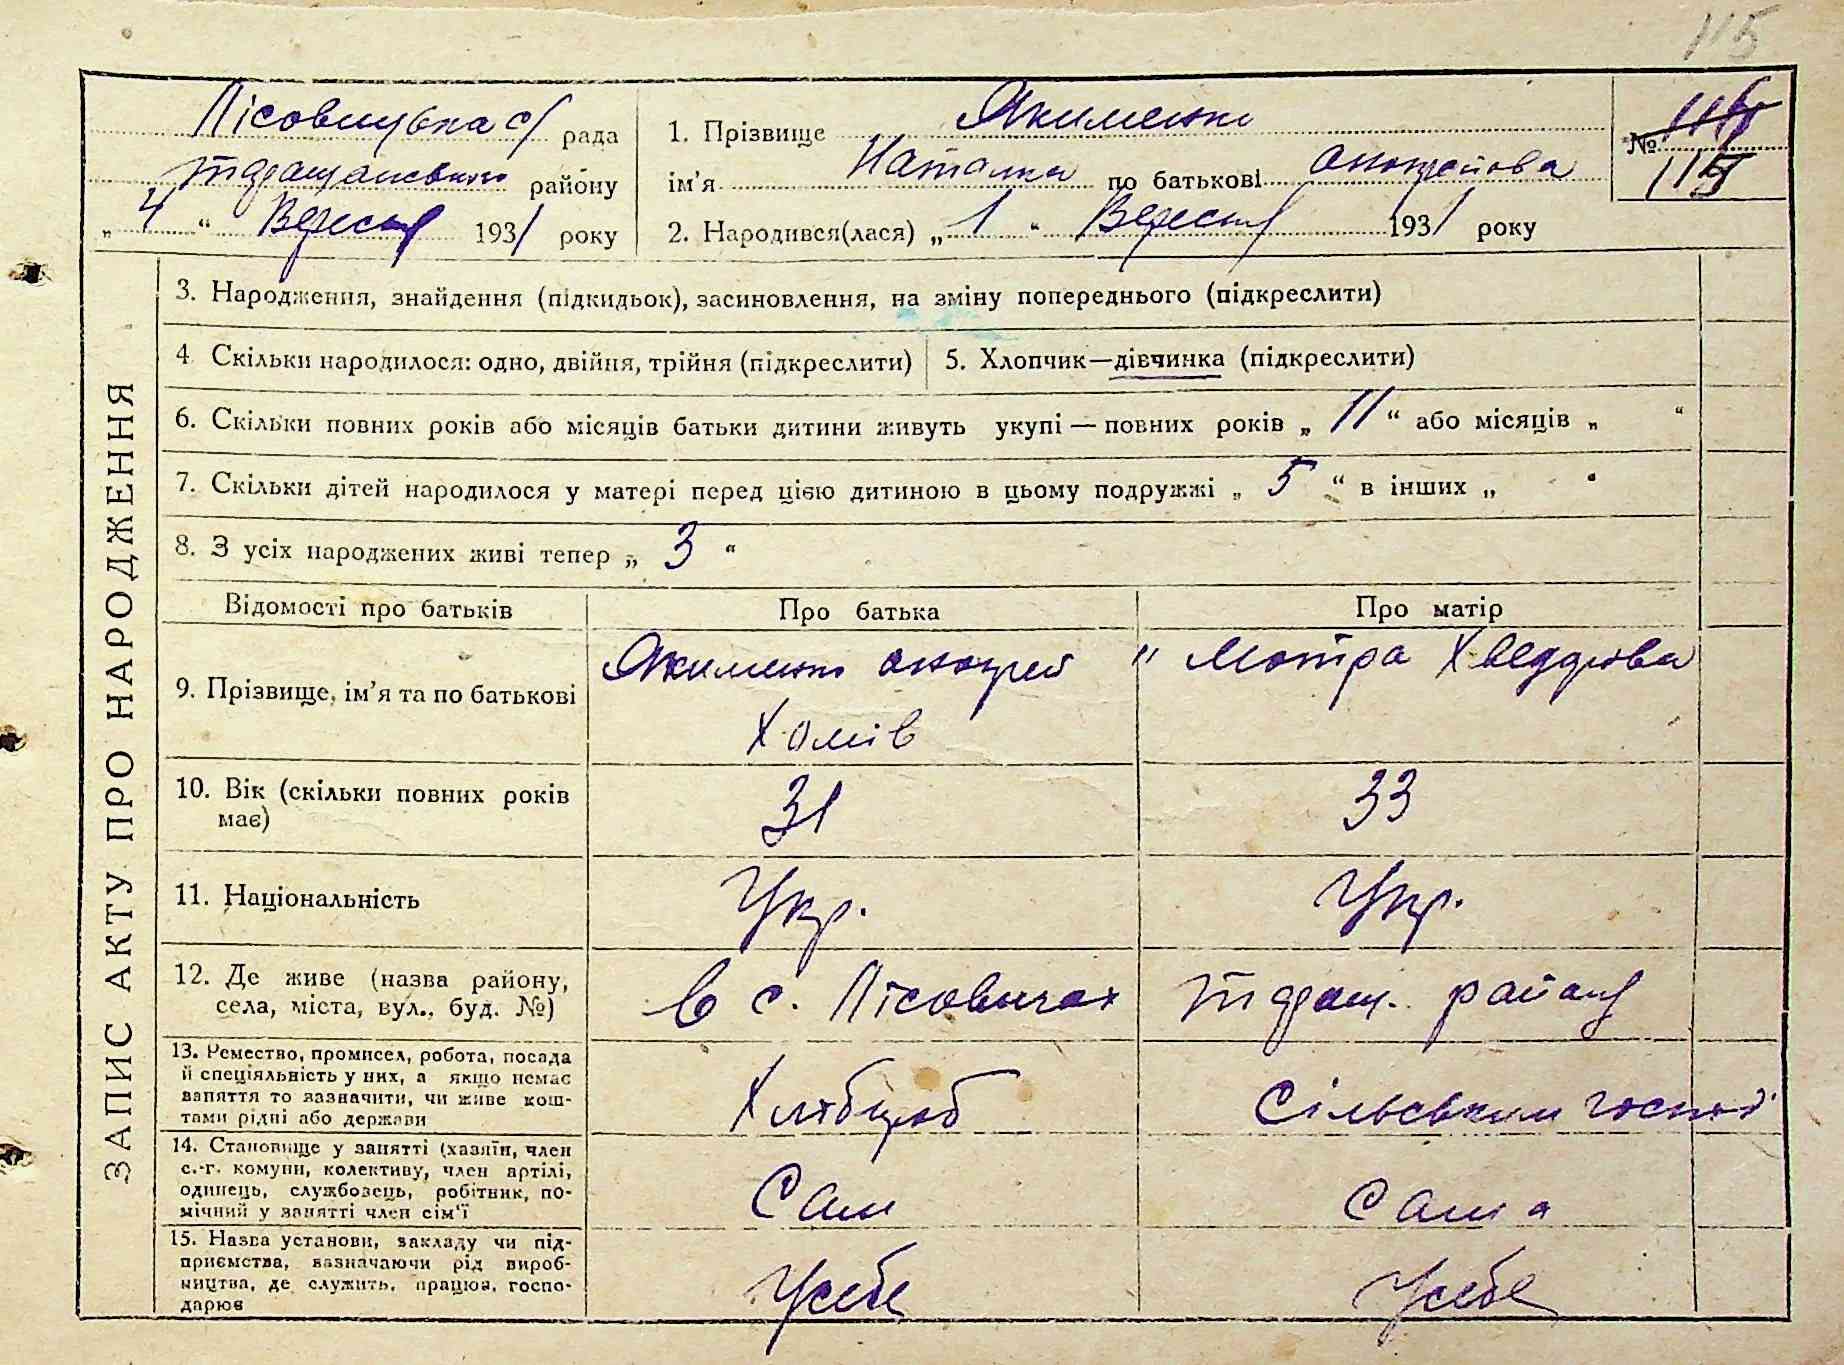 115
Лісовицька с/ рада
Таращанського району
„ 4 “ Вересня 1931 року
1. Прізвище Якименко
ім’я Наталка по батькові Андрейова
2. Народився(лася) „ 1 “ Вересня 1931 року
№
115
ЗАПИС АКТУ ПРО НАРОДЖЕННЯ
3. Народження, знайдення (підкидьок), засиновлення, на зміну попереднього (підкреслити)
4 Скільки народилося: одно, двійня, трійня (підкреслити)
5. Хлопчик—дівчинка (підкреслити)
6. Скільки повних років або місяців батьки дитини живуть укупі — повних років „ 11 “ або місяців „ “
7. Скільки дітей народилося у матері перед цією дитиною в цьому подружжі „ 5 “ в інших „ “
8. З усіх народжених живі тепер „ 3 “
Відомості про батьків
Про батька
Про матір
9. Прізвище, ім’я та по батькові
Якименко Андрей
Хомів
" Мотра Хведорова
10. Вік (скільки повних років
має)
31
33
11. Національність
Укр.
Укр.
12. Де живе (назва району,
села, міста, вул., буд. №)
в с. Лісовичах
Таращ. району
13. Ремество, промисел, робота, посада
й спеціяльність у них, а якщо немає
заняття то зазначити, чи живе кош-
тами рідні або держави
Хлібороб
Сільським господ.
14. Становище у занятті (хазяїн, член
с.-г. комуни, колективу, член артілі,
одинець, службовець, робітник, по-
мічний у занятті член сім’ї
Сам
Сама
15. Назва установи, закладу чи під-
приємства, зазначаючи рід вироб-
ництва, де служить, працює, госпо-
дарює
Усебе
Усебе